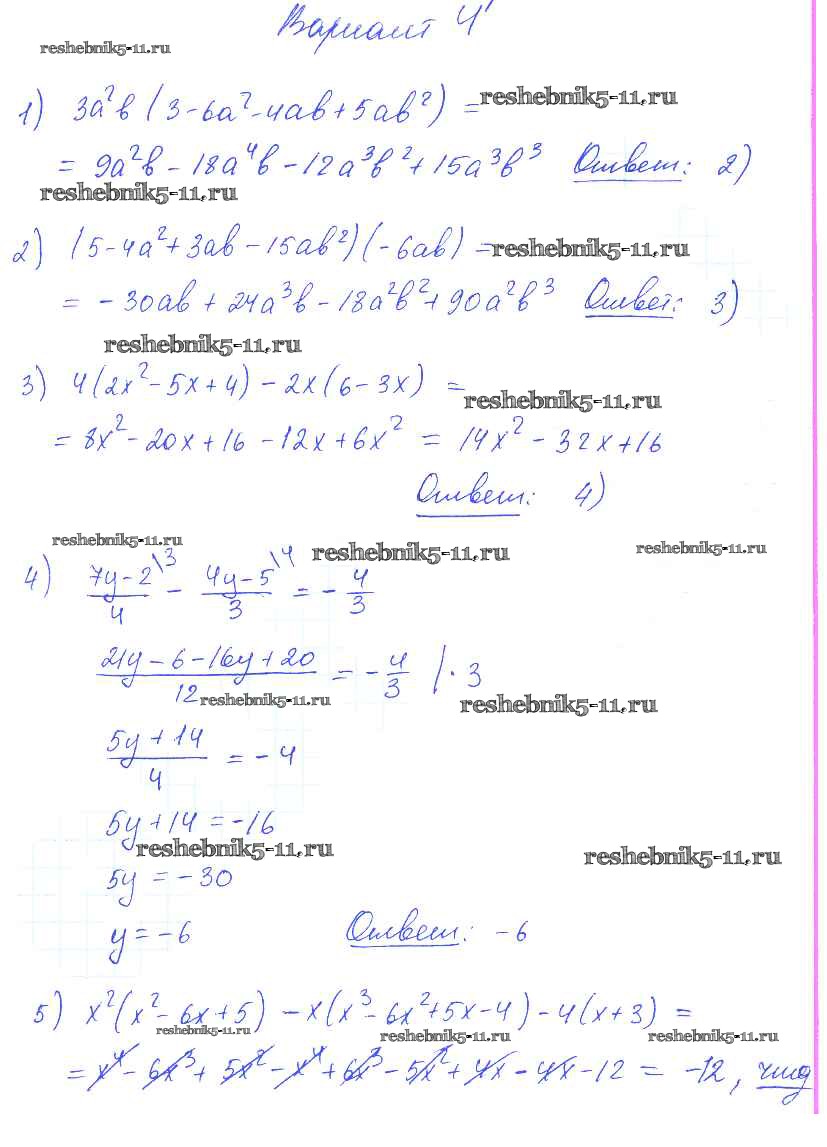 Вариант 4
reshebnik5-11.ru
1) 3a²b (3 - 6a² - 4ab + 5ab²) = reshebnik5-11.ru
= 9a²b - 18a⁴b - 12a³b² + 15a³b³ Ответ: 2)
reshebnik5-11.ru
2) (5 - 4a² + 3ab - 15ab²)(-6ab) = reshebnik5-11.ru
= -30ab + 24a³b - 18a²b² + 90a²b³ Ответ: 3)
reshebnik5-11.ru
3) 4(2x² - 5x + 4) - 2x(6 - 3x) =
reshebnik5-11.ru
= 8x² - 20x + 16 - 12x + 6x² = 14x² - 32x + 16
Ответ: 4)
reshebnik5-11.ru reshebnik5-11.ru reshebnik5-11.ru
4) (7y - 2)/4 \3 - (4y - 5)/3 \4 = -4/3
(21y - 6 - 16y + 20)/12 = -4/3 | · 3
reshebnik5-11.ru reshebnik5-11.ru
(5y + 14)/4 = -4
5y + 14 = -16
reshebnik5-11.ru reshebnik5-11.ru
5y = -30
y = -6 Ответ: -6
5) x²(x² - 6x + 5) - x(x³ - 6x² + 5x - 4) - 4(x + 3) =
reshebnik5-11.ru reshebnik5-11.ru reshebnik5-11.ru
= x⁴ - 6x³ + 5x² - x⁴ + 6x³ - 5x² + 4x - 4x - 12 = -12, чтд